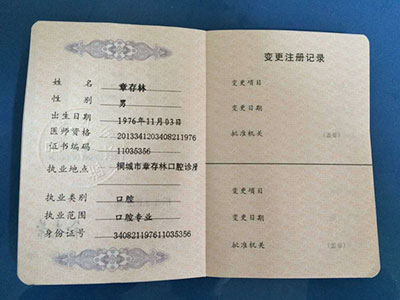 姓 名 章存林
性 别 男
出生日期 1976年11月03日
医师资格 2013341203408211976
证书编码 11035356
执业地点 桐城市章存林口腔诊所
执业类别 口腔
执业范围 口腔专业
身份证号 340821197611035356
变更注册记录
变更项目
变更日期
批准机关 (盖章)
变更项目
变更日期
批准机关 (盖章)